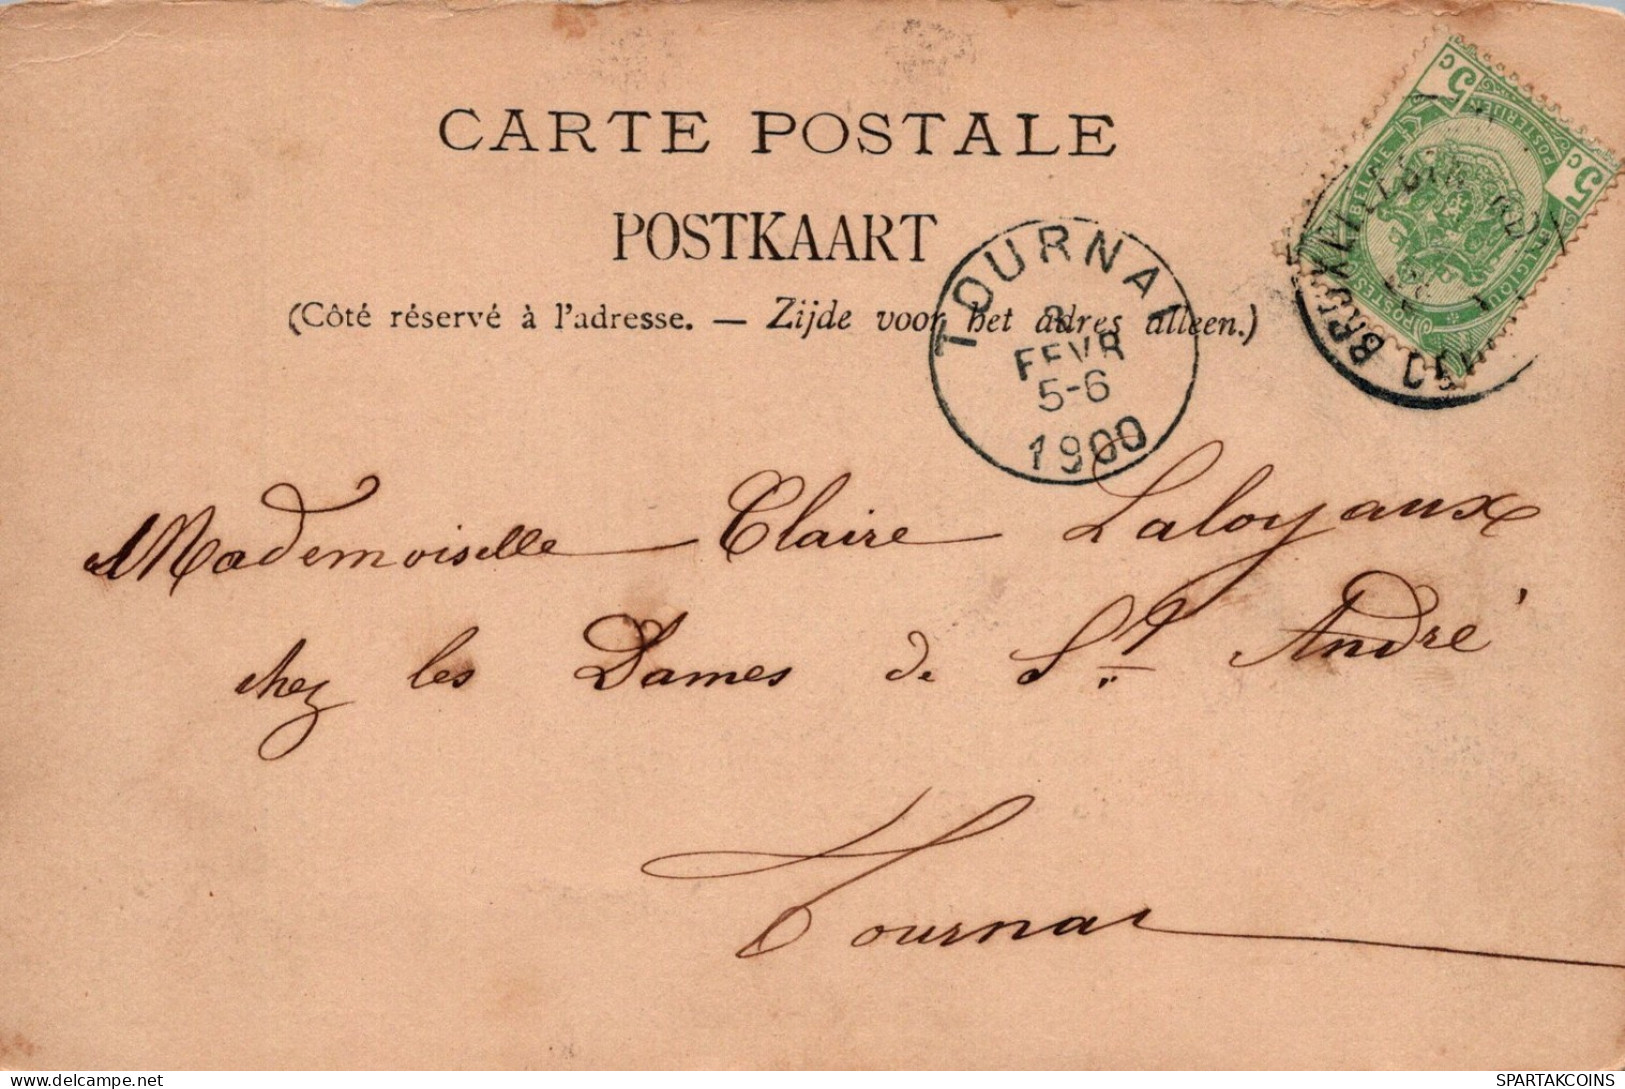 CARTE POSTALE
POSTKAART
(Côté réservé à l'adresse. — Zijde voor het adres alleen.)
TOURNAI
8
FEVR
5-6
1900
5c
5c
POSTES BELGIQUE
BELGIE POSTERIJEN
BRUXELLES
Mademoiselle Claire Laloyaux
chez les Dames de St André
Tournai
delcampe.net
SPARTAKCOINS